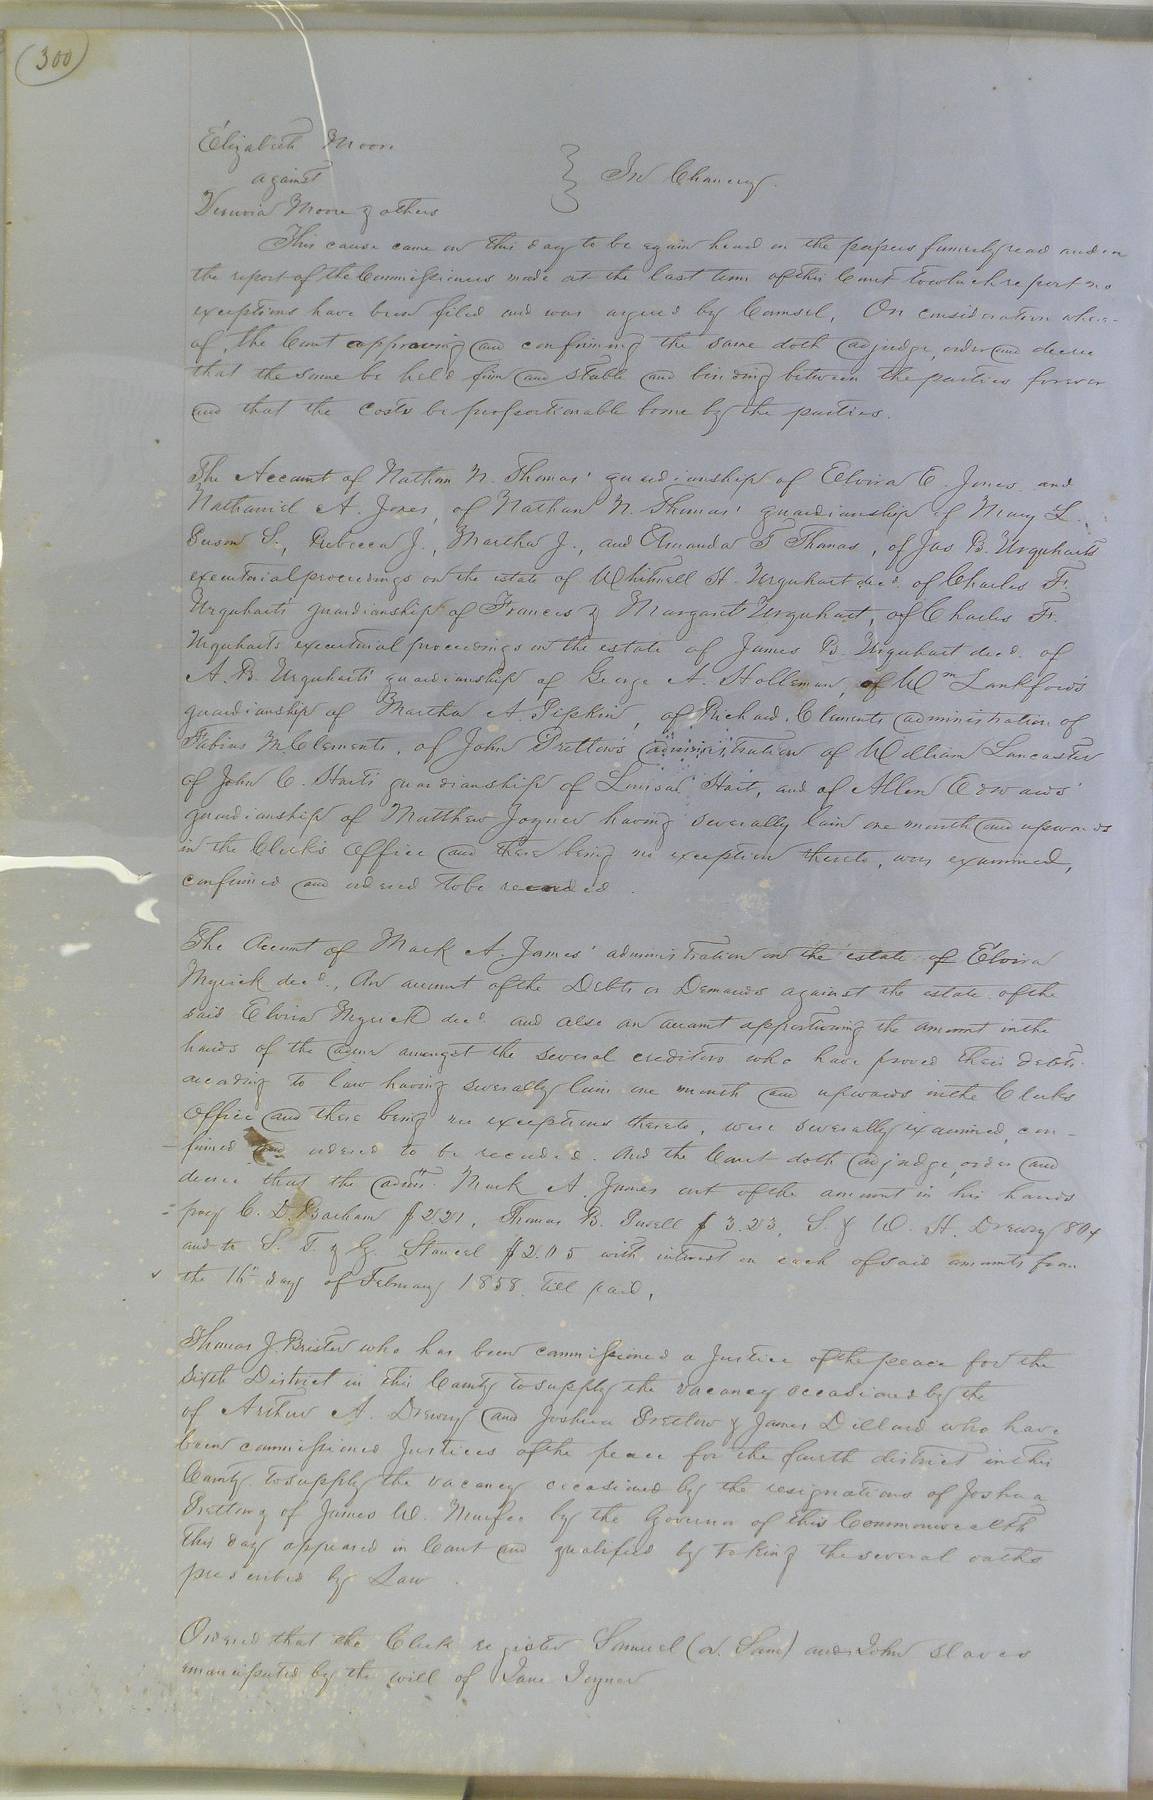 300
Elizabeth Moore
against } In Chancery.
Vesuvia Moore & others
This cause came on this day to be again heard on the papers formerly read and on
the report of the Commissioners made at the last term of this Court to which report no
exceptions have been filed and was argued by Counsel, On consideration where-
of, the Court approving and confirming the same doth adjudge, order and decree
that the same be held firm and stable and binding between the parties forever
and that the costs be proportionable borne by the parties.
The Account of Nathan N. Thomas' guardianship of Elvira E. Jones and
Nathaniel A. Jones, of Nathan N. Thomas' guardianship of Mary L.
Susan S., Rebecca J., Martha J., and Amanda T Thomas, of Jas B. Urquharts
executorial proceedings on the estate of Whitmell H. Urquhart decd. of Charles F.
Urquharts guardianship of Frances & Margaret Urquhart, of Charles F.
Urquharts executorial proceedings on the estate of James B. Urquhart decd. of
A. B. Urquharts guardianship of George A. Holleman, of Wm Lankford's
guardianship of Martha A. Pipkin, of Richard Clements administration of
Fabius M Clements, of John Pretlow's administration of William Lancaster
of John C. Harts guardianship of Louisa Hart, and of Allen Edwards'
guardianship of Matthew Joyner having severally lain one month and upwards
in the Clerk's Office and there being no exception thereto, were examined,
confirmed and ordered to be recorded.
The Account of Mark A. James' administration on the estate of Elvira
Myrick decd., An account of the Debts or Demands against the estate of the
said Elvira Myrick decd. and also an account apportioning the amount in the
hands of the admr amongst the several creditors who have proved their debts
according to law having severally lain one month and upwards in the Clerks
Office and there being no exceptions thereto, were severally examined, con-
firmed and ordered to be recorded. And the Court doth adjudge, order and
decree that the admr. Mark A. James out of the amount in his hands
pay C. D. Barham $221, Thomas B. Powell $3.23, S. & W. H. Drewry 804
and to S. T. & G. Stancel $2.05 with interest on each of said amounts from
the 16th day of February 1858 till paid,
Thomas J. Brister who has been commissioned a Justice of the peace for the
Sixth District in this County to supply the vacancy occasioned by the
of Arthur A. Drewry and Joshua Pretlow & James Dillard who have
been commissioned Justices of the peace for the fourth district in this
County to supply the vacancy occasioned by the resignations of Joshua
Pretlow & of James W. Murfee by the Governor of this Commonwealth
this day appeared in Court and qualified by taking the several oaths
prescribed by Law.
Ordered that the Clerk register Samuel (or Sam) and John slaves
emancipated by the will of Jane Joyner